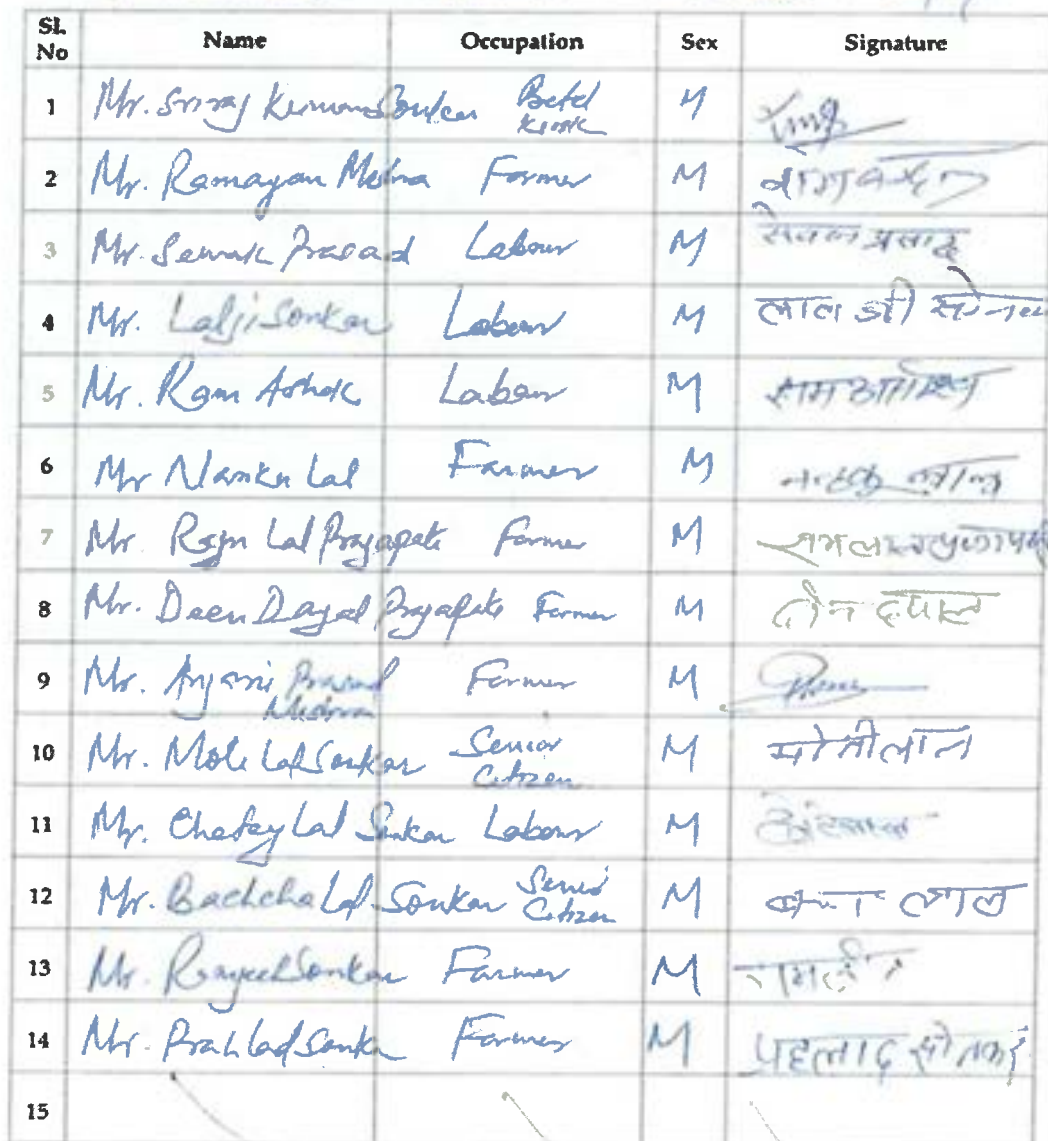 Sl. No Name Occupation Sex Signature
1 Mr. Sonkar Betel Kiosk M
2 Mr. Ramayan Mishra Farmer M
3 Mr. Sewak Prasad Labour M सेवक प्रसाद
4 Mr. Lalji Sonkar Labour M लाल जी सोनकर
5 Mr. Ram Ashok Labour M
6 Mr Nanku Lal Farmer M लाल
7 Mr. Lal Prajapati Farmer M
8 Mr. Deen Dayal Prajapati Farmer M दीन दयाल
9 Mr. Anjani Prasad Mishra Farmer M
10 Mr. Moti Lal Sonkar Senior Citizen M मोतीलाल
11 Mr. Chotey Lal Sonkar Labour M
12 Mr. Bachcha Lal Sonkar Senior Citizen M लाल
13 Mr. Sonkar Farmer M
14 Mr. Prahlad Sonkar Farmer M प्रहलाद सोनकर
15